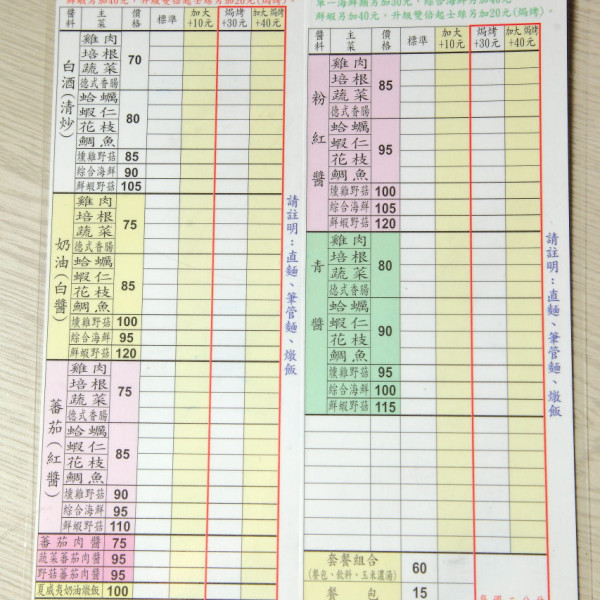 鮮蝦另加40元，升級雙倍起士絲另加20元(焗烤)。
醬料 主菜 價格 標準 加大+10元 焗烤+30元 加大焗烤+40元
白酒(清炒)
雞肉
培根
蔬菜
德式香腸
70
蛤蠣
蝦仁
花枝
鯛魚
80
燻雞野菇 85
綜合海鮮 90
鮮蝦野菇 105
奶油(白醬)
雞肉
培根
蔬菜
德式香腸
75
蛤蠣
蝦仁
花枝
鯛魚
85
燻雞野菇 100
綜合海鮮 95
鮮蝦野菇 120
蕃茄(紅醬)
雞肉
培根
蔬菜
德式香腸
75
蛤蠣
蝦仁
花枝
鯛魚
85
燻雞野菇 90
綜合海鮮 95
鮮蝦野菇 110
蕃茄肉醬 75
蔬菜蕃茄肉醬 95
野菇蕃茄肉醬 95
夏威夷奶油燉飯 100
請註明：直麵、筆管麵、燉飯
單一海鮮類另加30元，綜合海鮮另加40元
鮮蝦另加40元，升級雙倍起士絲另加20元(焗烤)。
醬料 主菜 價格 標準 加大+10元 焗烤+30元 加大焗烤+40元
粉紅醬
雞肉
培根
蔬菜
德式香腸
85
蛤蠣
蝦仁
花枝
鯛魚
95
燻雞野菇 100
綜合海鮮 105
鮮蝦野菇 120
青醬
雞肉
培根
蔬菜
德式香腸
80
蛤蠣
蝦仁
花枝
鯛魚
90
燻雞野菇 95
綜合海鮮 100
鮮蝦野菇 115
套餐組合 60
(餐包、飲料、玉米濃湯)
餐包 15
請註明：直麵、筆管麵、燉飯